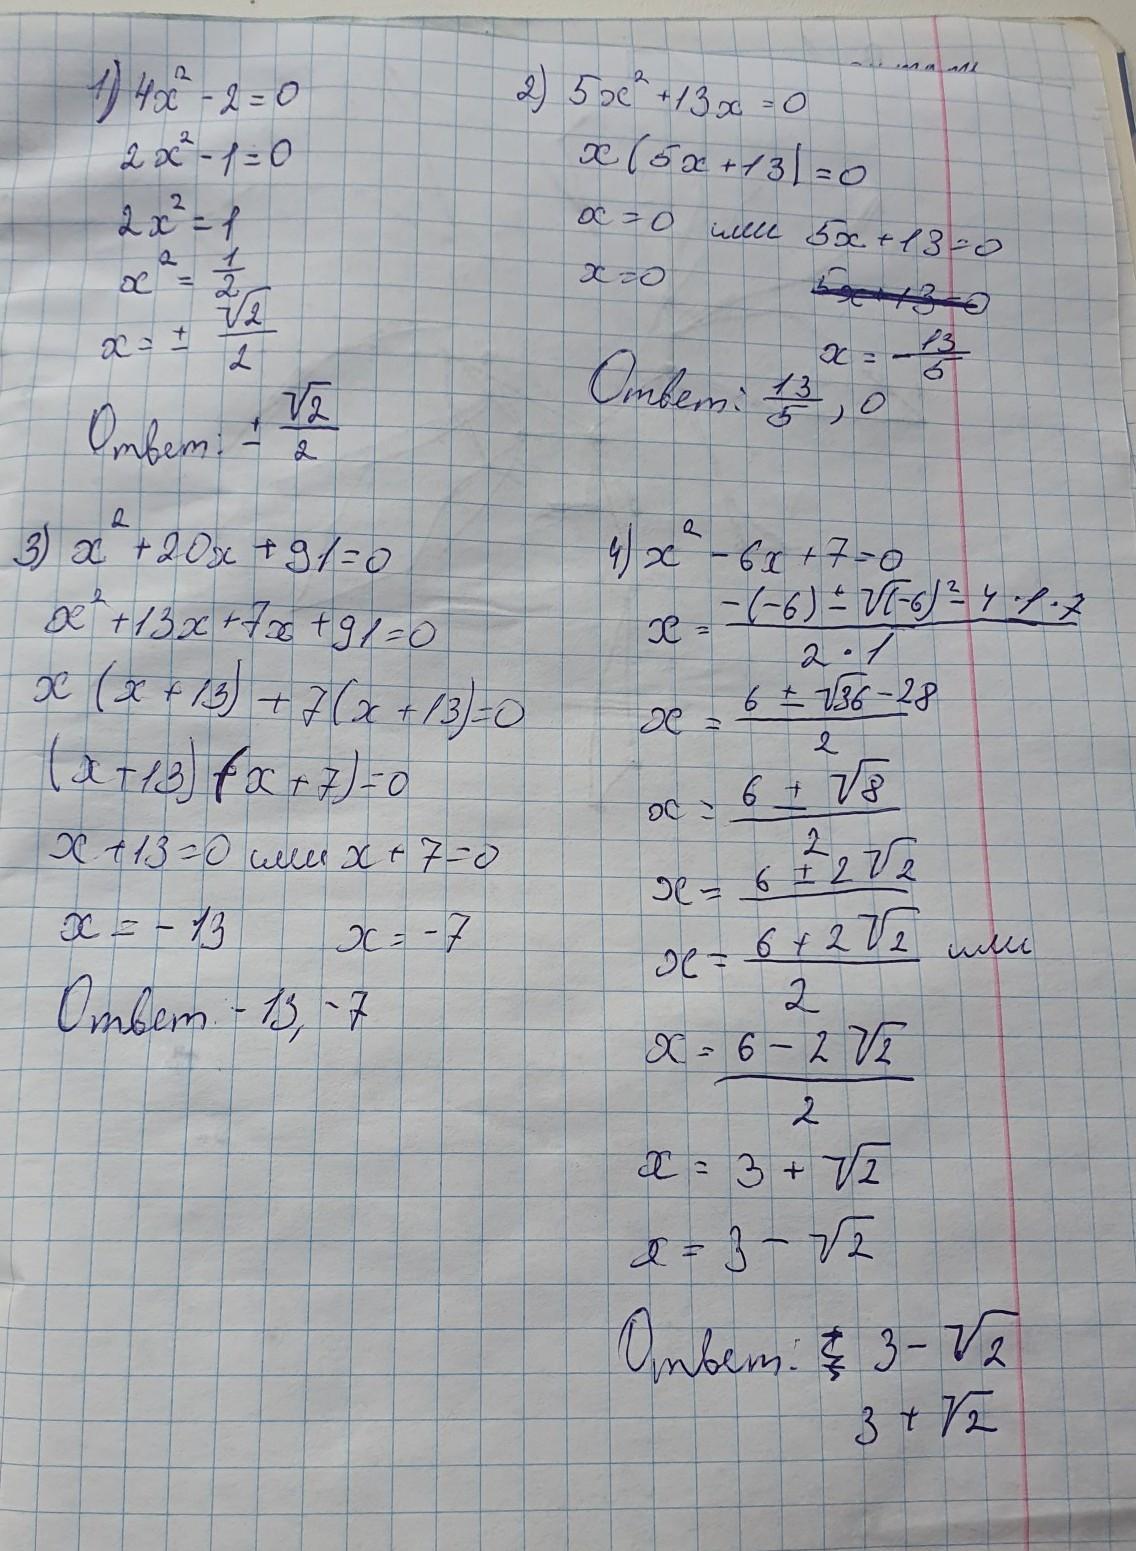 1) 4x² - 2 = 0
2x² - 1 = 0
2x² = 1
x² = 1/2
x = ± √2/2
Ответ: ± √2/2
2) 5x² + 13x = 0
x(5x + 13) = 0
x = 0 или 5x + 13 = 0
x = 0 5x + 13 = 0
x = - 13/5
Ответ: 13/5, 0
3) x² + 20x + 91 = 0
x² + 13x + 7x + 91 = 0
x (x + 13) + 7(x + 13) = 0
(x + 13) (x + 7) = 0
x + 13 = 0 или x + 7 = 0
x = - 13 x = -7
Ответ: - 13, -7
4) x² - 6x + 7 = 0
x = -(-6) ± √(-6)² - 4 · 1 · 7 / 2 · 1
x = 6 ± √36 - 28 / 2
x = 6 ± √8 / 2
x = 6 ± 2√2
x = 6 + 2√2 / 2 или
x = 6 - 2√2 / 2
x = 3 + √2
x = 3 - √2
Ответ: 3 - √2
3 + √2